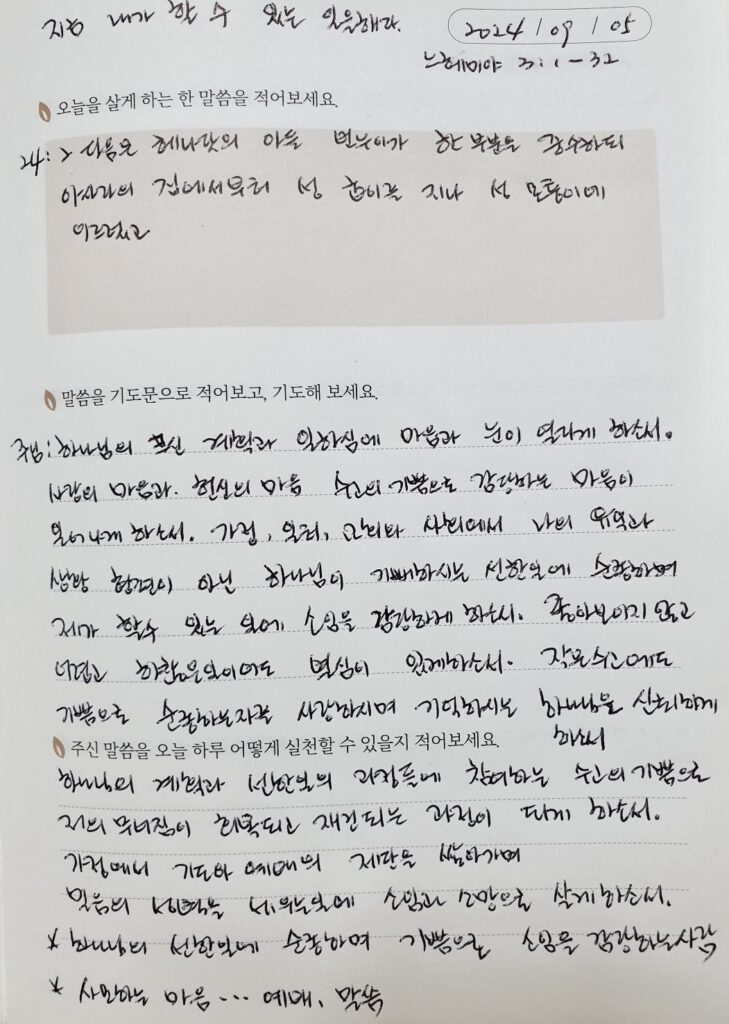 지금 내가 할 수 있는 일을해라.
2024 / 09 / 05
느헤미야 3:1-32
오늘을 살게 하는 한 말씀을 적어보세요.
24: > 다음은 헤나닷의 아들 빈누이가 한 부분을 중수하되
아사랴의 집에서부터 성 굽이를 지나 성 모퉁이에
이르렀고
말씀을 기도문으로 적어보고, 기도해 보세요.
주님: 하나님의 크신 계획과 일하심에 마음과 눈이 열리게 하소서.
사랑의 마음과. 헌신의 마음 수고의 기쁨으로 감당하는 마음이
일어나게 하소서. 가정, 일터, 교회와 사회에서 나의 유익과
생방 형편이 아닌 하나님이 기뻐하시는 선한일에 순종하며
제가 할수 있는 일에 소임을 감당하게 하소서. 좋아보이지 않고
더럽고 하찮은일이어도 열심이 있게하소서. 작은수고에도
기쁨으로 순종하는자를 사랑하시며 기억하시는 하나님을 신뢰하게
하소서
주신 말씀을 오늘 하루 어떻게 실천할 수 있을지 적어보세요.
하나님의 계획과 선한일의 과정들에 참여하는 수고의 기쁨으로
저의 무너짐이 회복되고 재건되는 과정이 되게 하소서.
가정에서 기도와 예배의 제단을 쌓아가며
믿음의 성벽을 세우는일에 소임과 소망으로 살게하소서.
* 하나님의 선한일에 순종하며 기쁨으로 소임을 감당하는사람
* 사모하는 마음 ... 예배, 말씀